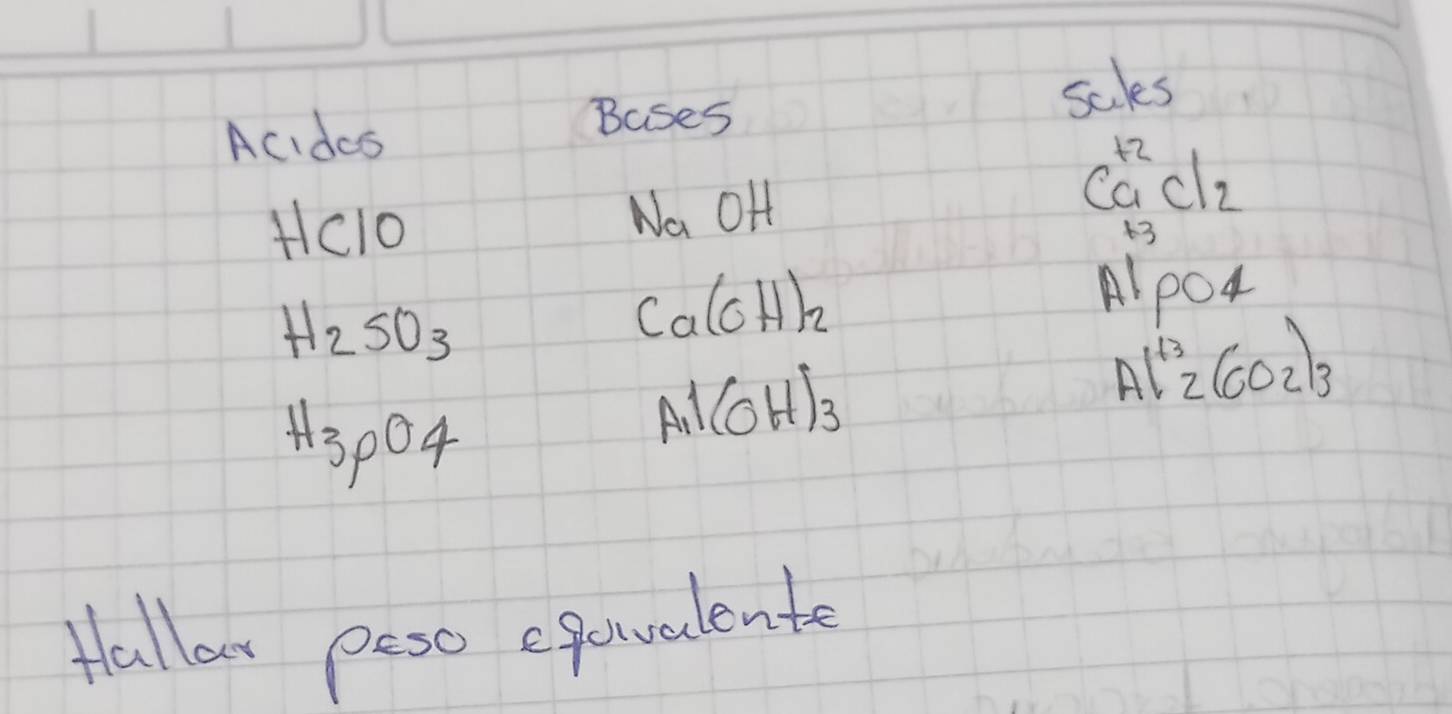 Acidos Bases Sales
HClO NaOH Ca+2Cl2
H2SO3 Ca(OH)2 Al+3PO4
H3PO4 Al(OH)3 Al+32(CO2)3
Hallar peso equivalente